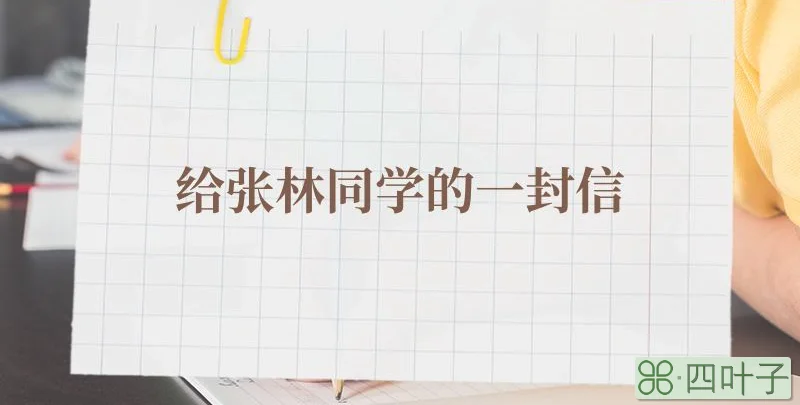 给张林同学的一封信
四叶子